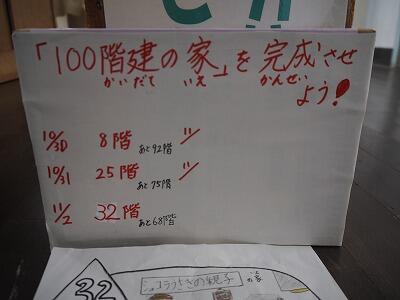 「100階建の家」を完成させ
かいだて いえ かんせい
よう!
10/30 8階 あと92階 〃
10/31 25階 あと75階 〃
11/2 32階 あと68階
32 ショコラうさぎの親子
の家